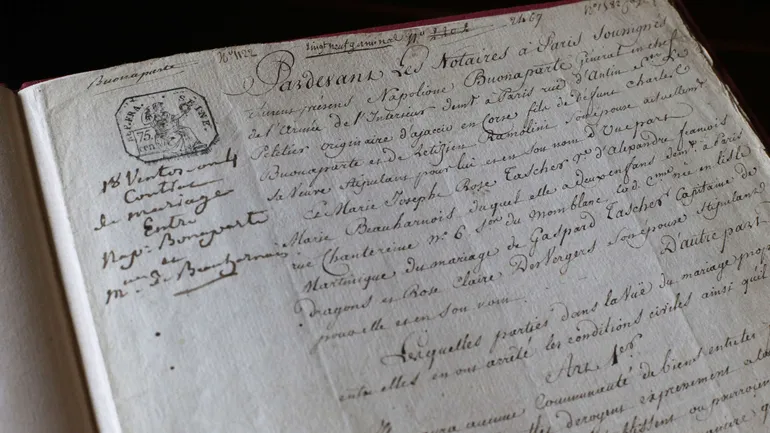 Buonaparte
Nº 1182
vingt neuf germinal Nº
2469
75
Pardevant Les Notaires à Paris Soussignés
furent presens Napolione Buonaparte Général en chef
de l'Armée de l'Interieur demt à Paris rue d'Antin
originaire d'ajaccio en Corse fils de défunt Charles
Buonaparte et de Letizia Ramolini son épouse actuellement
sa Veuve Stipulant pour lui et en son nom D'Une part
Et Marie Joseph Rose Tascher Ve d'Alexandre françois
Marie Beauharnois duquel elle a deux enfans demte à Paris
rue Chantereine Nº 6 Son du Montblanc lad. Cne née en l'isle
Martinique du mariage de Gaspard Tascher Capitaine de
Dragons et Rose Claire DesVergers Son épouse Stipulant
pour elle et en son nom D'autre part
Lesquelles parties dans la Vüe du mariage
entre elles en ont arrêté les conditions civiles ainsi qu'il
Art. 1er
aucune Communauté de biens entre les
derogent expressement à la
18 Ventose an 4
Contrat
de mariage
Entre
Nap. Bonaparte
et
Me de Beauharnais